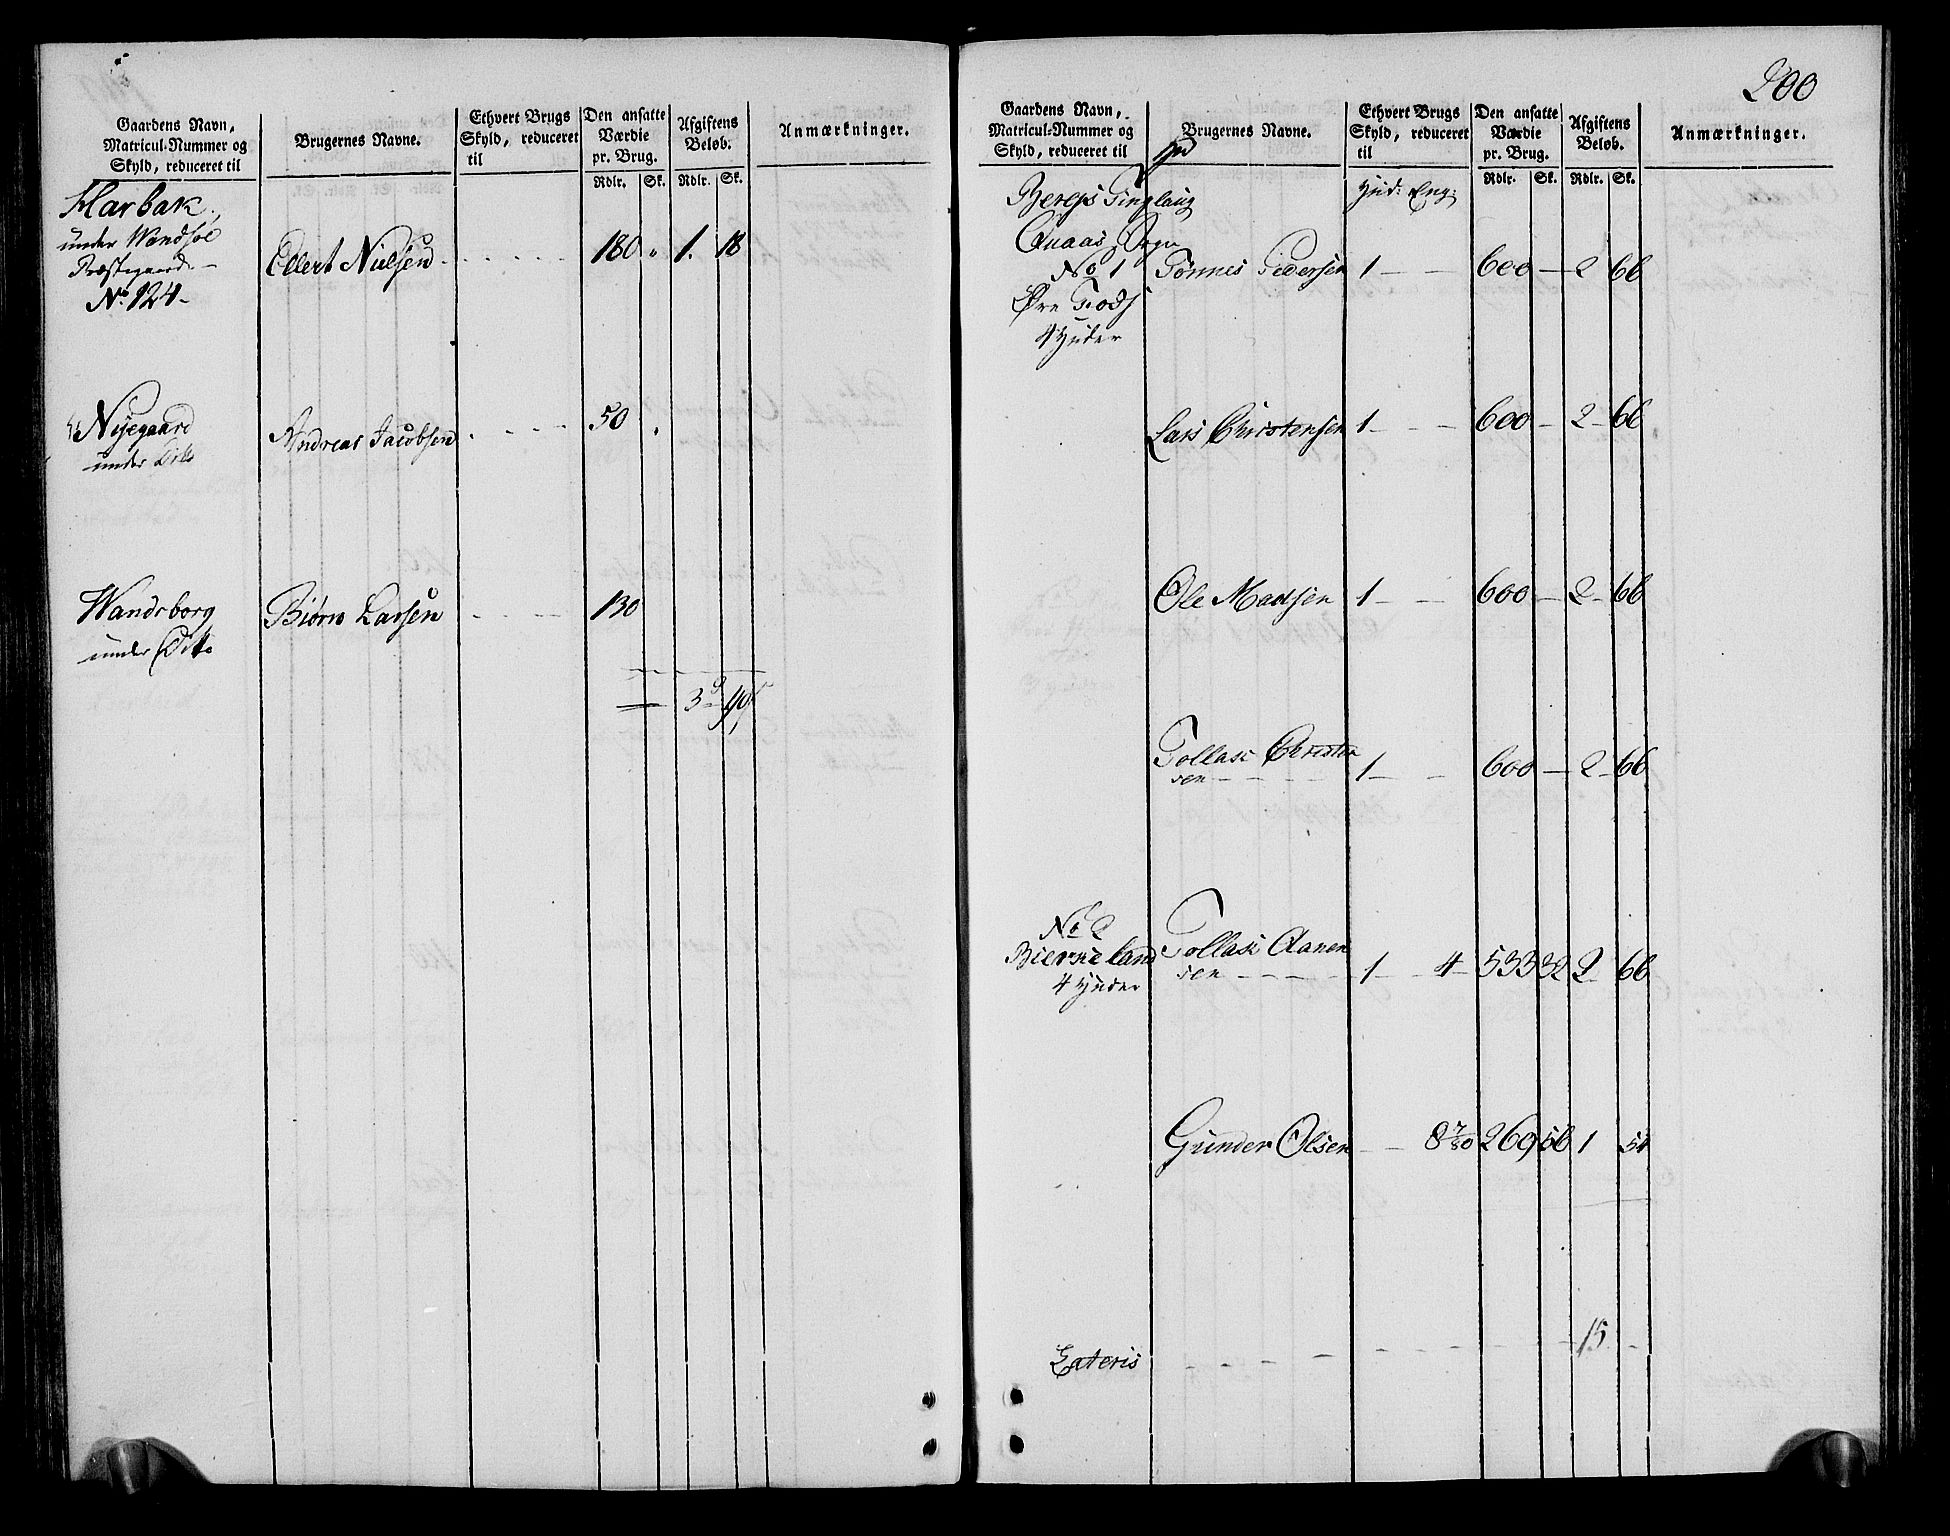 Gaardens Navn,
Matricul-Nummer og
Skyld, reduceret til
Brugernes Navne.
Ethvert Brugs
Skyld, reduceret
til
Den ansatte
Værdie
pr. Brug.
Rdlr. Sk.
Afgiftens
Beløb.
Rdlr. Sk.
Anmærkninger.
Harbak
under Wandsøe
Præstegaard
No. 124
Ellert Nielsen 180 " 1. 18
Nyegaard
under Dito
Andreas Jacobsen 50
Wandsborg
under Ditto
Biørn Larsen 130
3 d
200
Gaardens Navn,
Matricul-Nummer og
Skyld, reduceret til
Brugernes Navne.
Ethvert Brugs
Skyld, reduceret
til
Den ansatte
Værdie
pr. Brug.
Rdlr. Sk.
Afgiftens
Beløb.
Rdlr. Sk.
Anmærkninger.
Tinglaug
Hud: Eng:
Quaas Sogn
No 1 Tønnes Pedersen 1 - - 600 - 2 66
Øre
4 Huder
Lars Christensen 1 - - 600 - 2 66
Ole Madsen 1 - - 600 - 2 66
Tollasi Christen
sen 1 - - 600 - 2 66
No 2
Bierneland Tollasi Aanen
4 Huder sen 1 - 4 533 32 2 66
Gunder Olsen - 8 7/80 269 56 1 54
Lateris 15 -